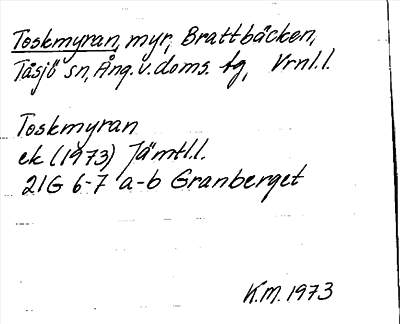 Toskmyran, myr, Brattbäcken,
Tåsjö sn, Ång. v. doms. tg, Vrnl.l.
Toskmyran
ek (1973) Jämtl.l.
21G 6-7 a-b Granberget
K.M. 1973